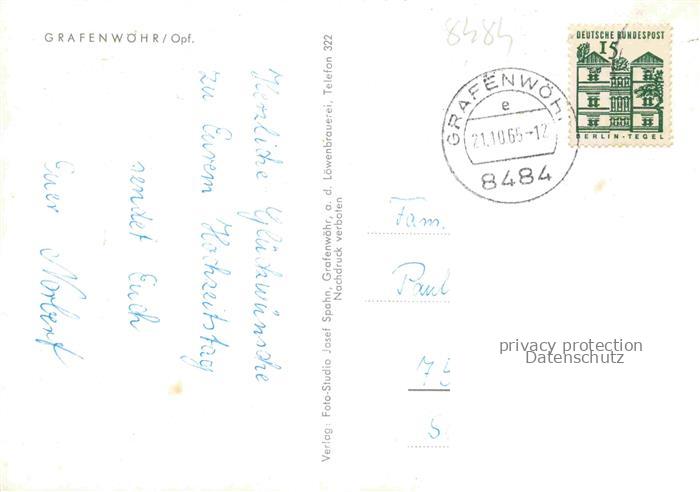 GRAFENWÖHR/Opf.
Herzliche Glückwünsche
zu Eurem Hochzeitstag
sendet Euch
Euer Norbert
Verlag: Foto-Studio Josef Spahn, Grafenwöhr, a. d. Löwenbrauerei, Telefon 322
Nachdruck verboten
8484
DEUTSCHE BUNDESPOST
15
BERLIN-TEGEL
GRAFENWÖH
e
21.10.65-12
8484
Fam.
Paul
S
privacy protection
Datenschutz